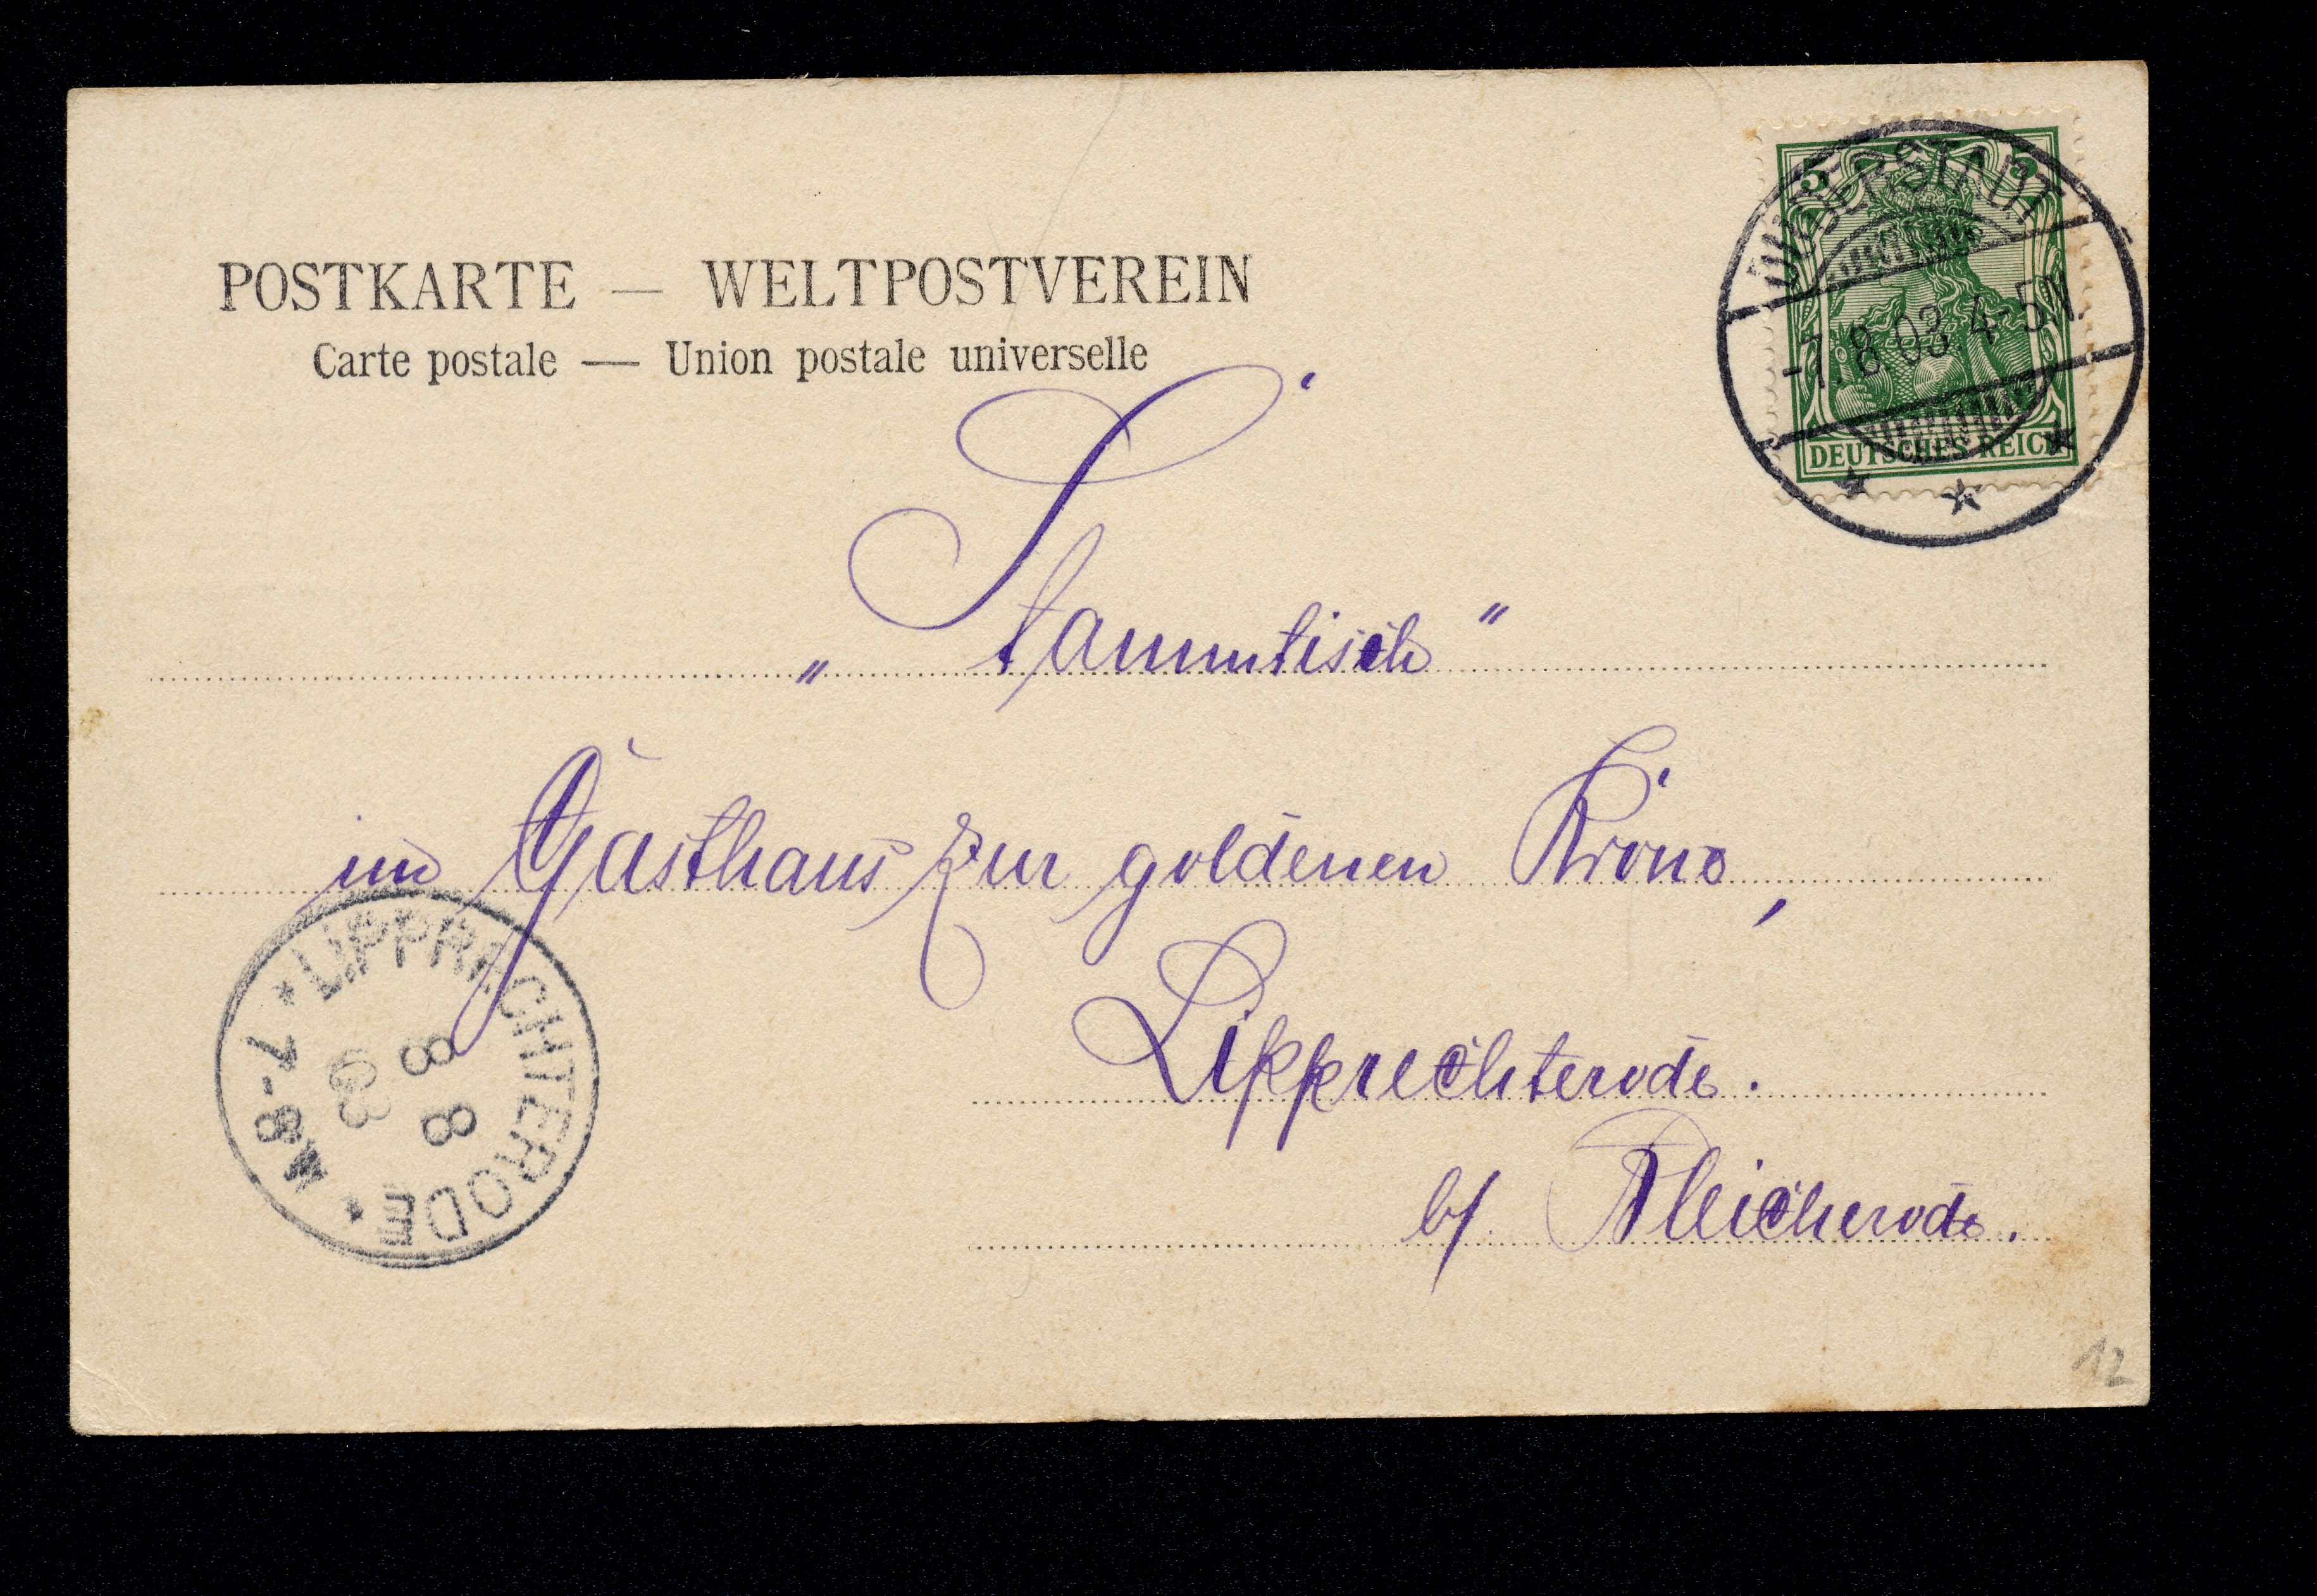 POSTKARTE — WELTPOSTVEREIN
Carte postale — Union postale universelle
5 5
DEUTSCHES REICH
DUDERSTADT
-7.8.03 4-5N.
„Stammtisch"
im Gasthaus zur goldenen Krone,
Lipprechterode.
b/ Bleicherode.
*LIPPRECHTERODE*
8 8
03
7-8N
12